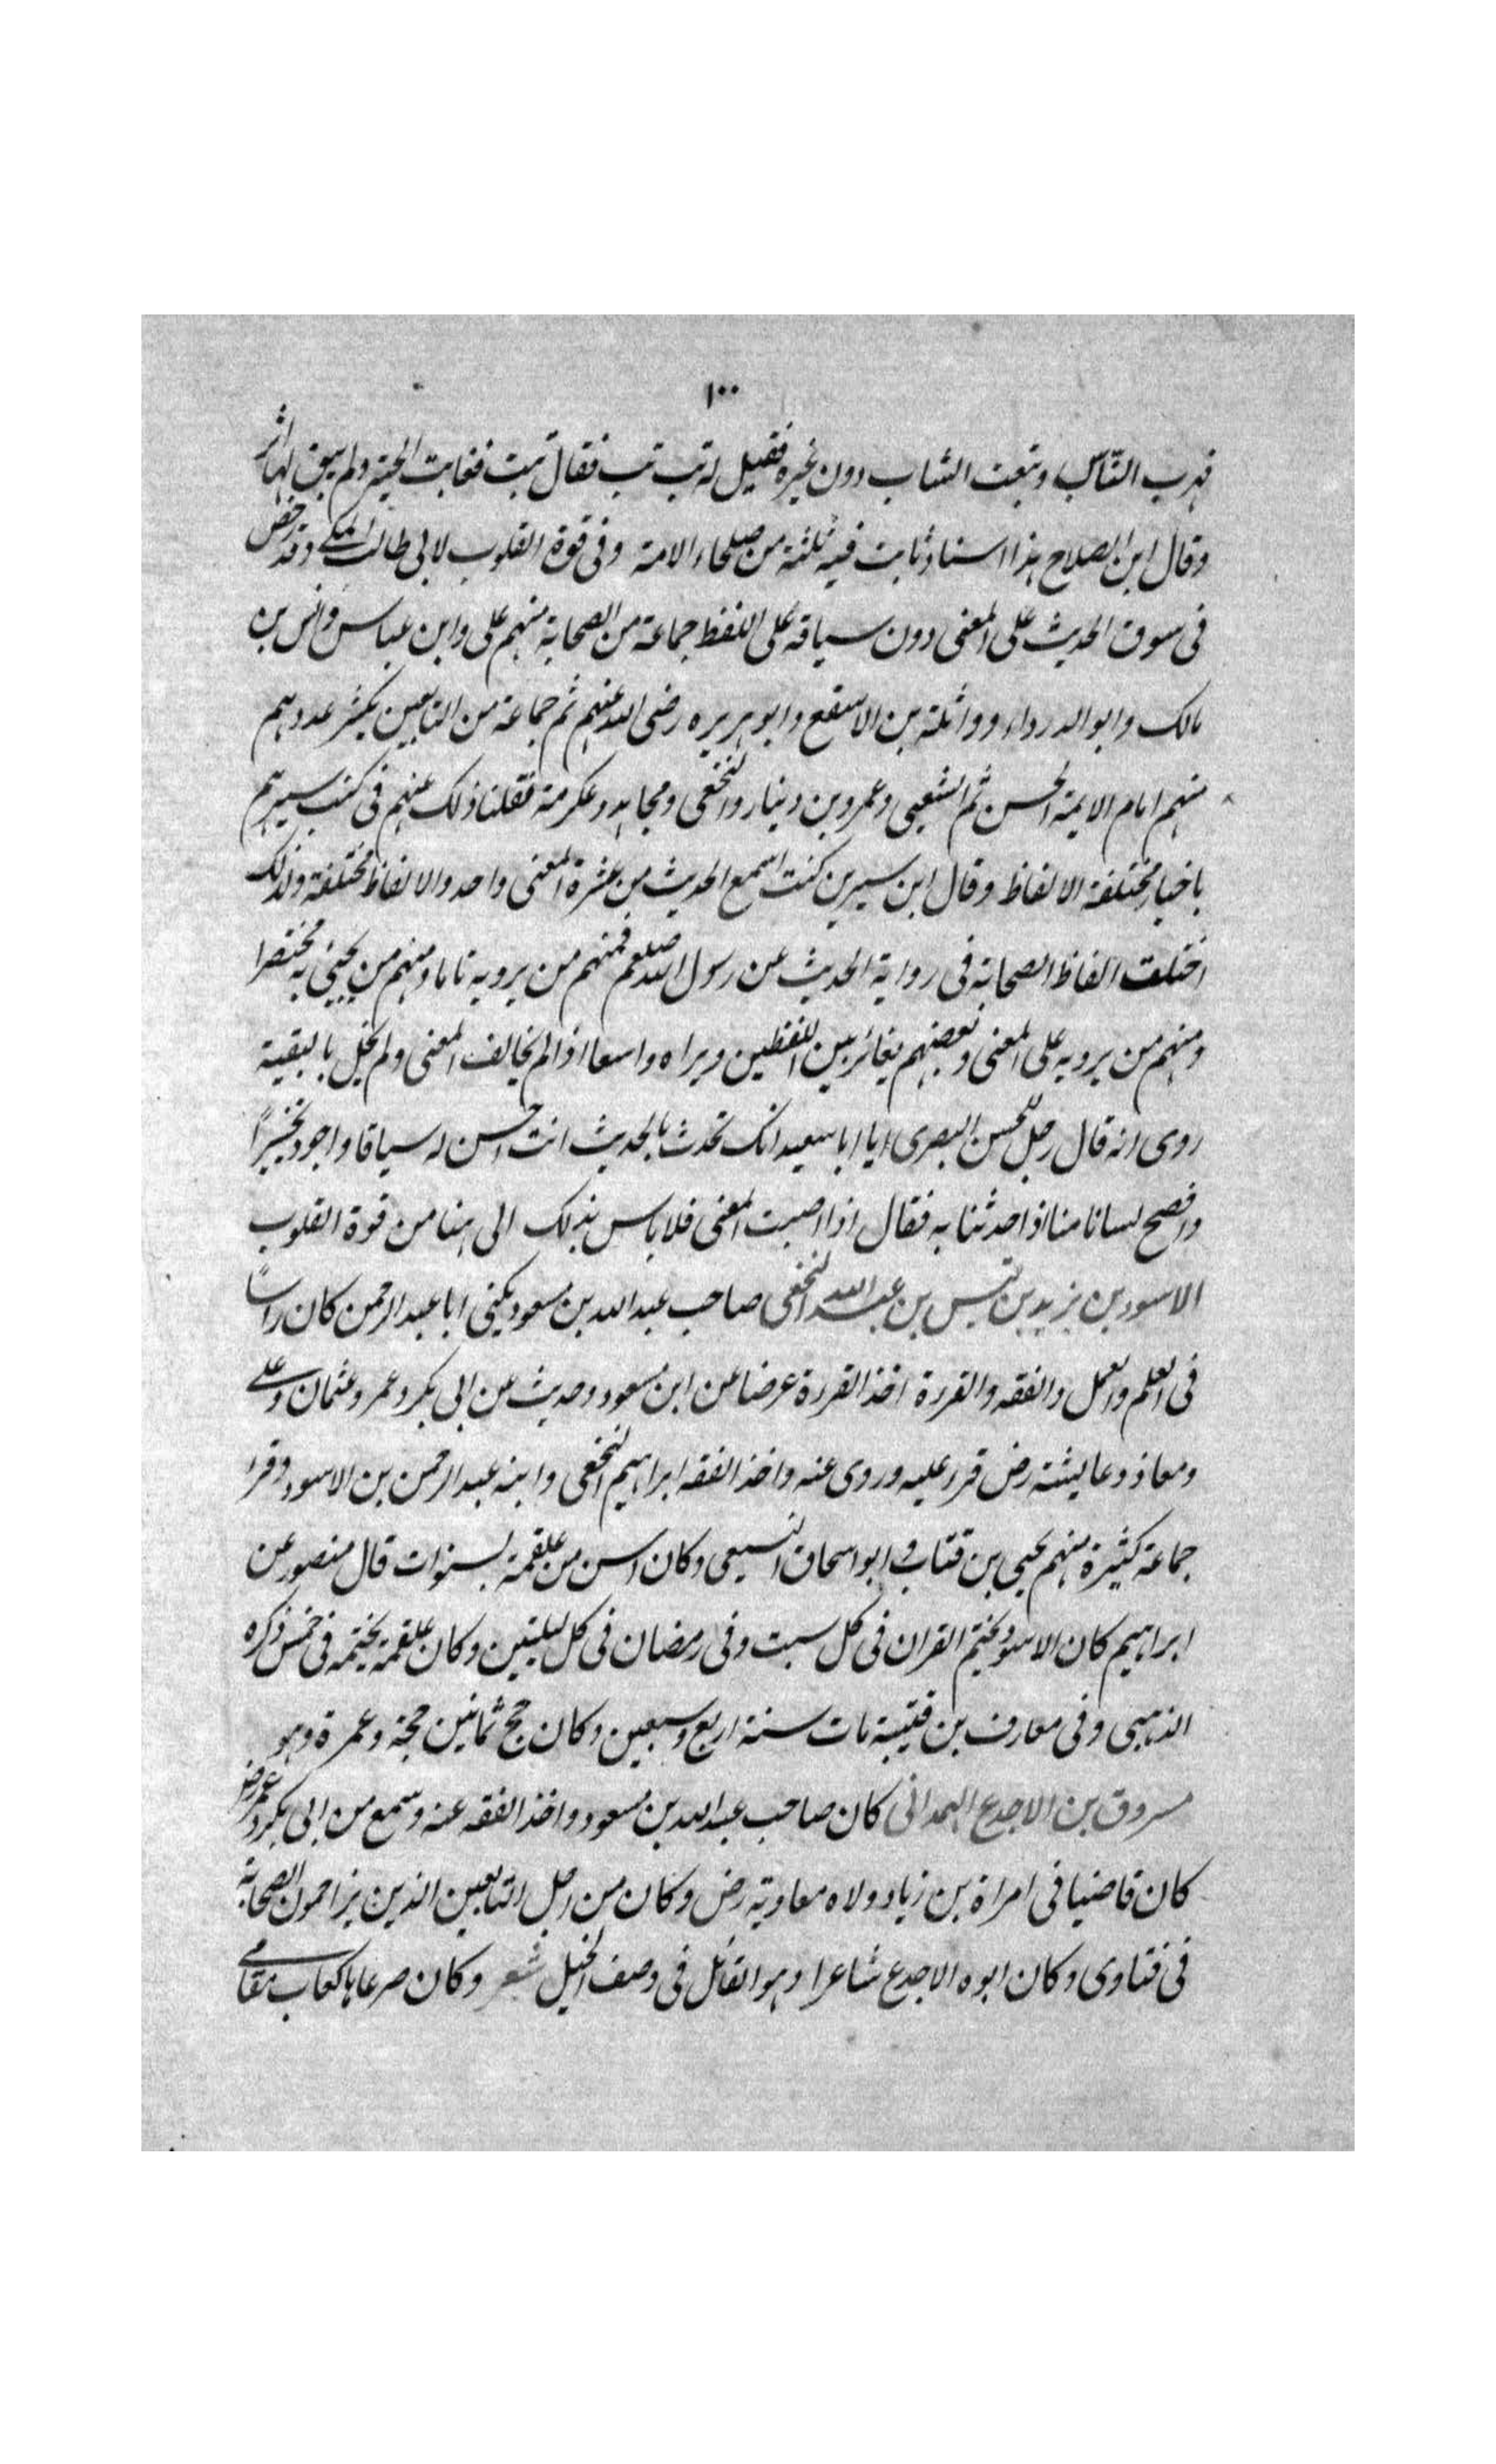 ١٠٠
فهرب الناس وتبعت الشاب دون غيره فقيل له تب تب فقال تبت فغابت الحية ولم يبق لها اثر
وقال ابن الصلاح هذا اسناد ثابت فيه ثلثة من صلحاء الامة وفى قوة القلوب لابى طالب المكى وقد رخص
فى سوق الحديث على المعنى دون سياقه على اللفظ جماعة من الصحابة منهم على وابن عباس وانس بن
مالك وابو الدرداء وواثلة بن الاسقع وابو هريره رضى الله عنهم ثم جماعة من التابعين يكثر عددهم
منهم امام الايمة الحسن ثم الشعبى وعمرو بن دينار والنخعى ومجاهد وعكرمة نقلنا ذلك عنهم فى كتب سيرهم
باخبار مختلفة الالفاظ وقال ابن سيرين كنت اسمع الحديث من عشرة المعنى واحد والالفاظ مختلفة ولذلك
اختلف الفاظ الصحابة فى رواية الحديث عن رسول الله صلعم فمنهم من يرويه تاما ومنهم من يجيئ به مختصرا
ومنهم من يرويه على المعنى وبعضهم يغائر بين اللفظين ويراه واسعا اذا لم يخالف المعنى ولم يخل بالبقية
روى انه قال رجل للحسن البصرى ايا ابا سعيد انك تحدث بالحديث انت احسن له سياقا واجود تحبيرا
وافصح لسانا منا اذا حدثنا به فقال اذا اصبت المعنى فلا باس بذلك الى هنا من قوة القلوب
الاسود بن يزيد بن قيس بن عبد الله النخعى صاحب عبد الله بن مسعود يكنى ابا عبد الرحمن كان راسًا
فى العلم والعمل والفقه والقررة اخذ القررة عرضا عن ابن مسعود وحديث عن ابى بكر وعمر وعثمان وعلى
ومعاذ وعايشة رض قرر عليه وروى عنه واخذ الفقه ابراهيم النخعى وابنه عبد الرحمن بن الاسود وقرا
جماعة كثيرة منهم يحيى بن قتاب وابو اسحاق السبيعى وكان اسن من علقمة بسنوات قال منصور عن
ابراهيم كان الاسود يختم القران فى كل سبت وفى رمضان فى كل ليلتين وكان علقمة يختمه فى خمس ذكره
الذهبى وفى معارف بن قتيبة مات سنة اربع وسبعين وكان حج ثمانين حجة وعمرة وهو
مسروق بن الاجدع الهمدانى كان صاحب عبد الله بن مسعود واخذ الفقه عنه وسمع من ابى بكر وعمر رض
كان قاضيا فى امراة بن زياد ولاه معاوية رض وكان من اجل التابعين الذين يزاحمون الصحابة
فى فتاوى وكان ابوه الاجدع شاعرا وهو القائل فى وصف الخيل شعر وكان صرعاها كعاب